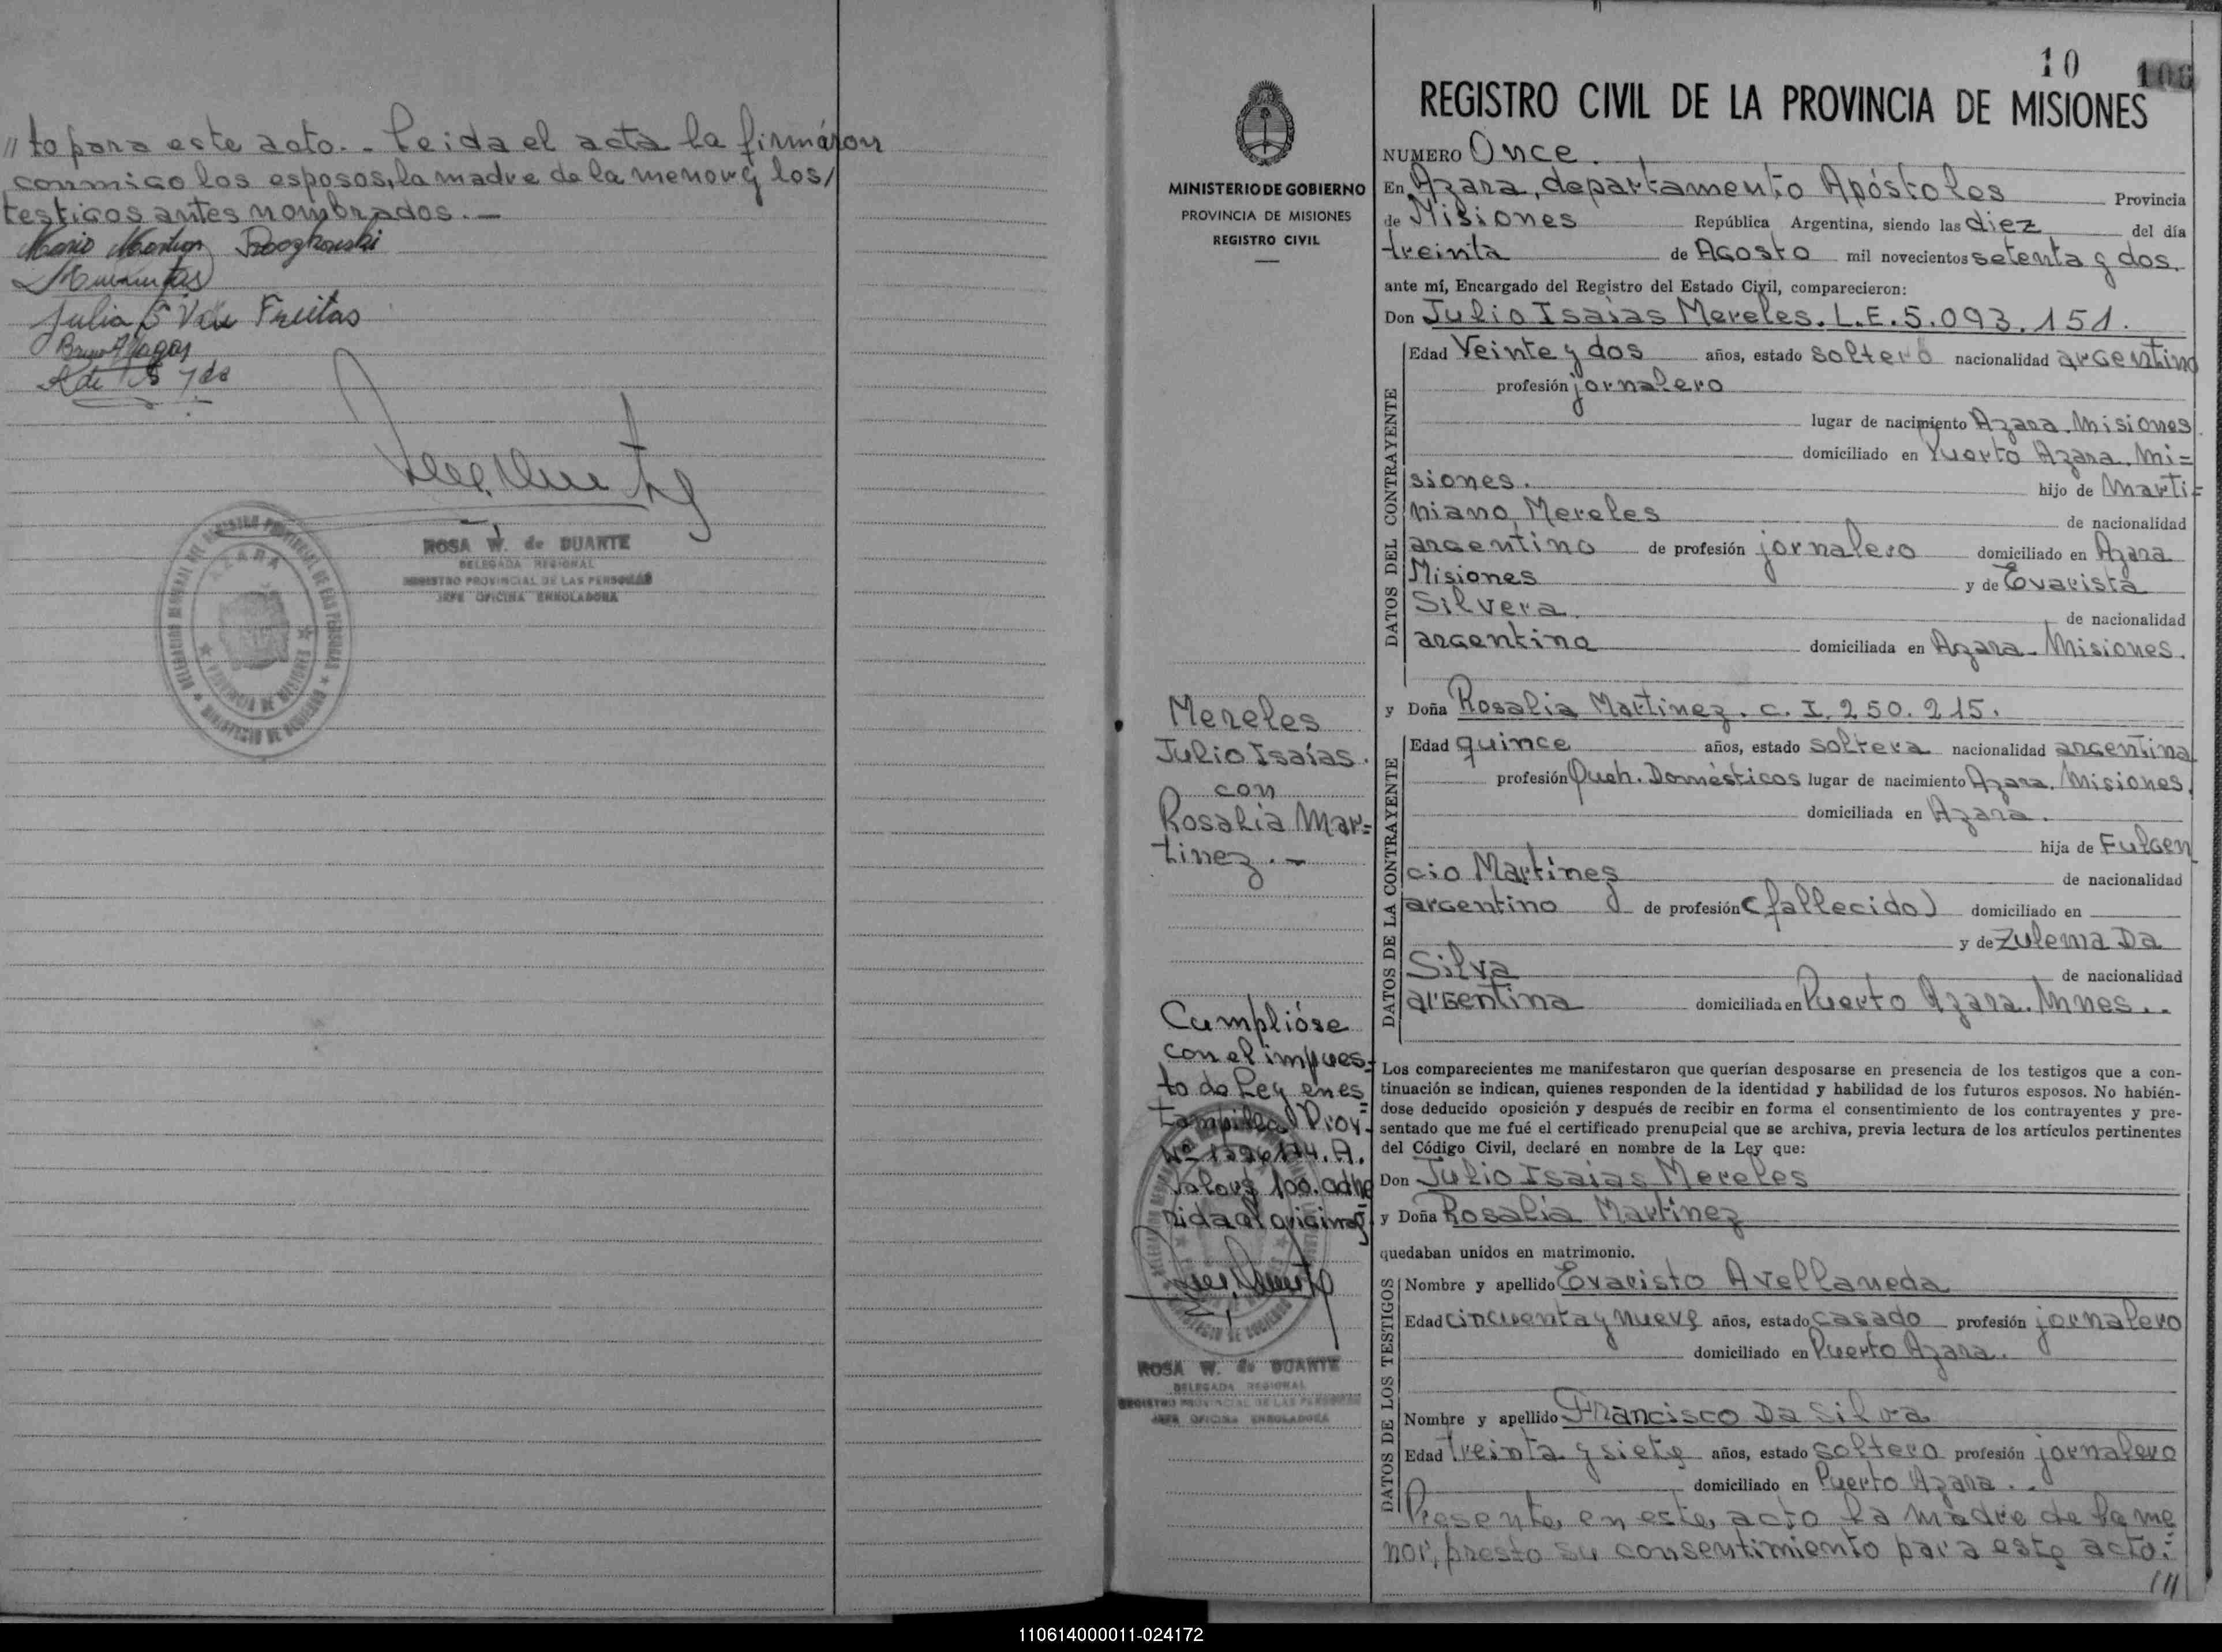 // to para este acto.- Leida el acta la firmáron
conmigo los esposos, la madre de la menor y los/
testigos antes nombrados.—
Mario
Julia de Freitas
ROSA W. de DUARTE
DELEGADA REGIONAL
REGISTRO PROVINCIAL DE LAS PERSONAS
JEFE OFICINA ENROLADORA
AZARA
PROVINCIA DE MISIONES
10 106
REGISTRO CIVIL DE LA PROVINCIA DE MISIONES
MINISTERIO DE GOBIERNO
PROVINCIA DE MISIONES
REGISTRO CIVIL
NUMERO Once.
En Azara, departamento Apóstoles Provincia
de Misiones República Argentina, siendo las diez del día
treinta de Agosto mil novecientos setenta y dos.
ante mí, Encargado del Registro del Estado Civil, comparecieron:
Don Julio Isaías Mereles. L.E. 5.093.151.
DATOS DEL CONTRAYENTE
Edad Veinte y dos años, estado soltero nacionalidad argentino
profesión jornalero
lugar de nacimiento Azara. Misiones.
domiciliado en Puerto Azara. Mi=
siones. hijo de Marti=
niano Mereles de nacionalidad
argentino de profesión jornalero domiciliado en Azara
Misiones y de Evarista
Silvera de nacionalidad
argentina domiciliada en Azara- Misiones.
y Doña Rosalia Martinez. C. I. 250.215.
DATOS DE LA CONTRAYENTE
Edad quince años, estado soltera nacionalidad argentina
profesión Queh. Domésticos lugar de nacimiento Azara. Misiones.
domiciliada en Azara.
hija de Fulgen
cio Martínes de nacionalidad
argentino de profesión (fallecido) domiciliado en
y de Zulema Da
Silva de nacionalidad
argentina domiciliada en Puerto Azara. Mnes..
Los comparecientes me manifestaron que querían desposarse en presencia de los testigos que a con-
tinuación se indican, quienes responden de la identidad y habilidad de los futuros esposos. No habién-
dose deducido oposición y después de recibir en forma el consentimiento de los contrayentes y pre-
sentado que me fué el certificado prenupcial que se archiva, previa lectura de los artículos pertinentes
del Código Civil, declaré en nombre de la Ley que:
Don Julio Isaias Mereles
y Doña Rosalia Martinez
quedaban unidos en matrimonio.
DATOS DE LOS TESTIGOS
Nombre y apellido Evaristo Avellaneda
Edad cincuenta y nueve años, estado casado profesión jornalero
domiciliado en Puerto Azara.
Nombre y apellido Francisco Da Silva
Edad treinta y siete años, estado soltero profesión jornalero
domiciliado en Puerto Azara..
Presente en este acto la madre de la me
nor, presto su consentimiento para este acto.-
///
Mereles
Julio Isaías.
con
Rosalia Mar=
tinez.-
Cumplióse
con el impues-
to de Ley en es
tampilla Prov-
Valor $ 100. adhe
rida al original
ROSA W. de DUARTE
DELEGADA REGIONAL
REGISTRO PROVINCIAL DE LAS PERSONAS
JEFE OFICINA ENROLADORA
110614000011-024172